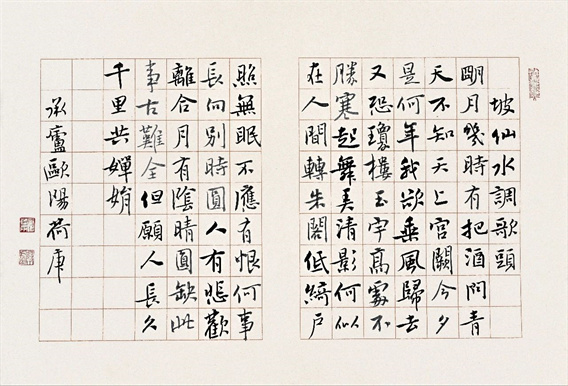 坡仙水調歌頭
明月幾時有把酒問青
天不知天上宮闕今夕
是何年我欲乘風歸去
又恐瓊樓玉宇高處不
勝寒起舞弄清影何似
在人間轉朱閣低綺戶
照無眠不應有恨何事
長向別時圓人有悲歡
離合月有陰晴圓缺此
事古難全但願人長久
千里共嬋娟
承廬歐陽荷庚